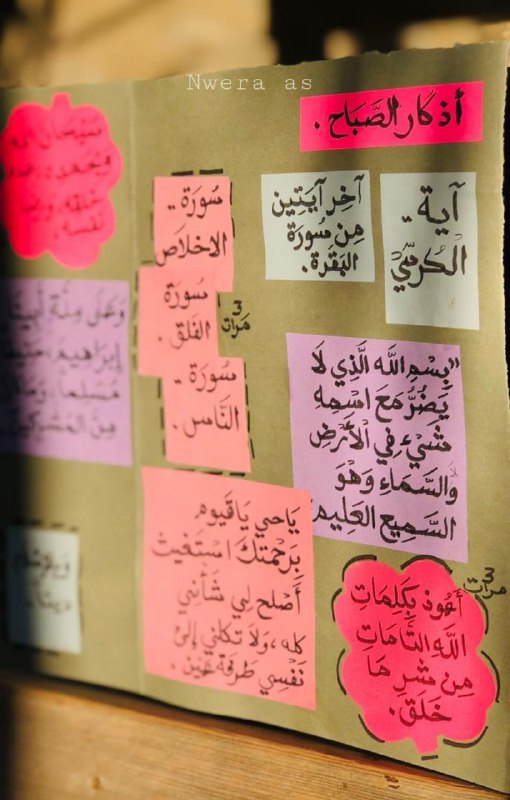 Nwera as
أذكار الصَّبَاح .
آية -
الكُرسّيْ
آخِر آيَتِين
مِن سُورَة
البَقَرة.
سُورَة -
الاخلاص
سُورَة
الفَلَق .
سُورَة -
النَّاس .
3
مَرات
"بِسْمِ اللَّه الَّذِي لَا
يَضُرُّ مَعَ اسمِهِ
شَيْءٌ فِي الْأَرْضِ
وَلَا السَّمَاءِ وَهُوَ
السَّمِيع العَلِيم
يَاحي يَاقَيوم
بَرَحْمَتكَ اسْتَغِيث
أَصْلح لِي شَأنِي
كله ، وَلَا تَكلنِي إلىٰ
نَفْسِي طَرفَة عَيْن .
3
مَرات
أَعُوذ بِكَلِمَاتِ
اللَّه التَّامَاتِ
مِن شرِ مَا
خَلَقَ.
سُبْحَانَ الله
وَبِحَمْدِهِ عَدد
خَلقِه وَرِضَى
نَفْسِه .
وَعَلى مِلَّة أَبِينَا
إبْرَاهِيم ، حَنِيفًا
مُسْلِمًا، وَمَا كَان
مِنَ المُشْرِكِين.